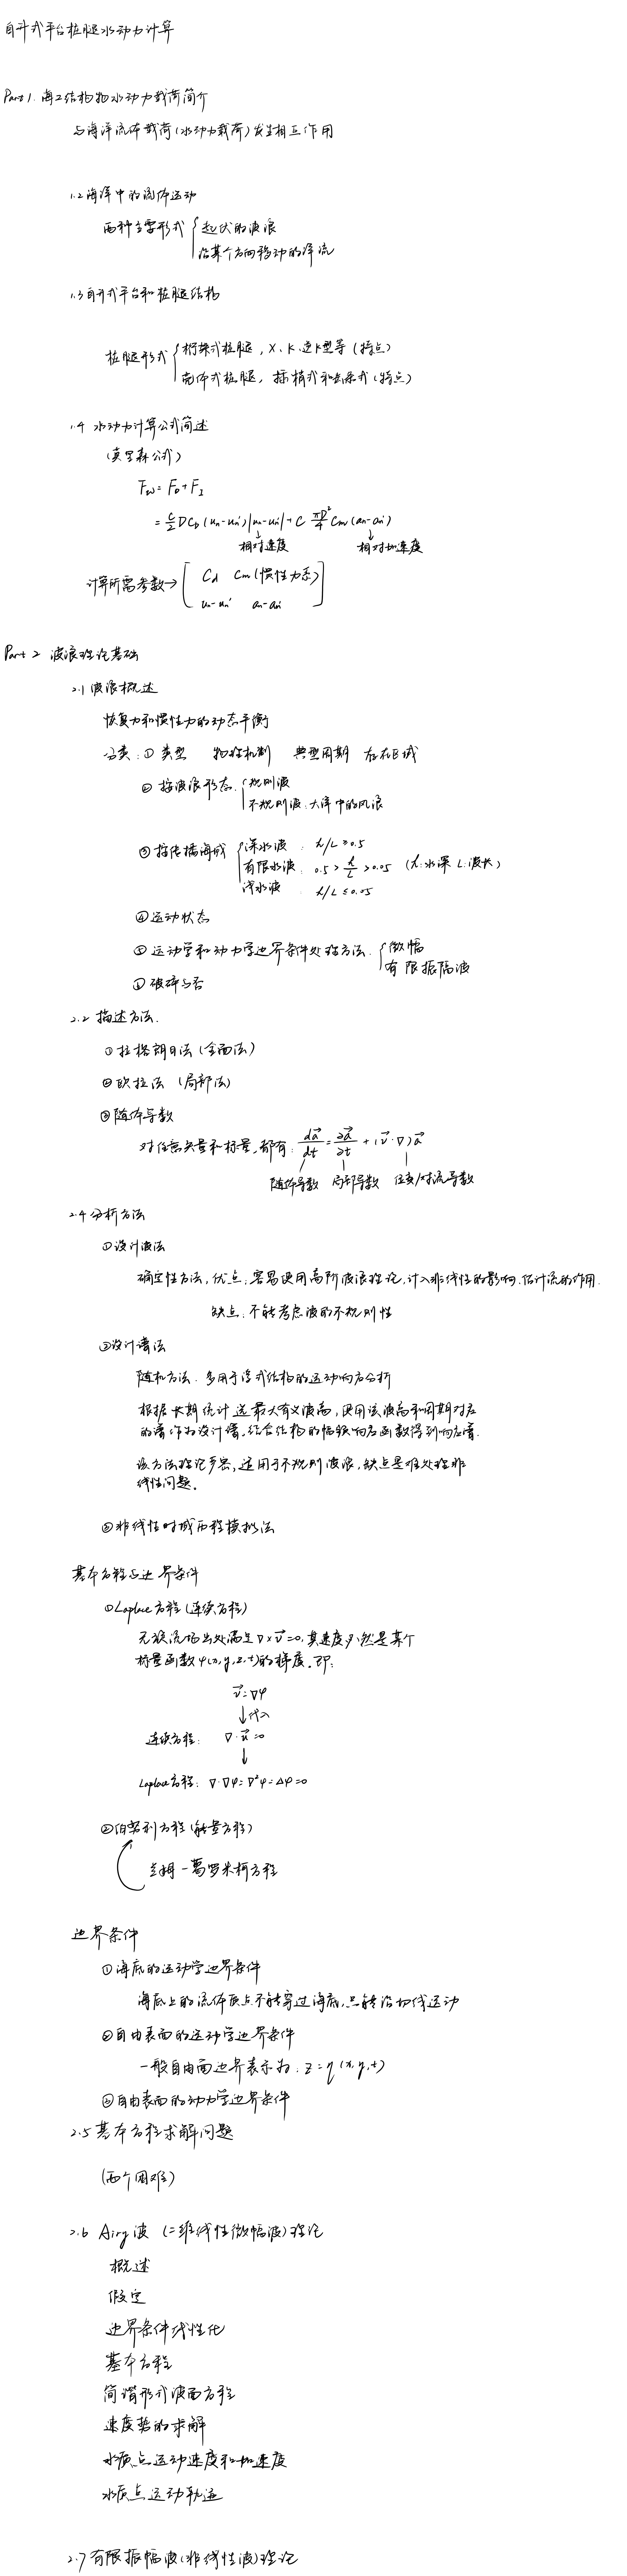 自升式平台桩腿水动力计算
Part 1. 海工结构物水动力载荷简介
与海洋流体载荷(水动力载荷)发生相互作用
1.2 海洋中的流体运动
两种主要形式 { 起伏的波浪
沿某个方向移动的洋流
1.3 自升式平台和桩腿结构
桩腿形式 { 桁架式桩腿, X、K、逆K型等 (特点)
壳体式桩腿, 插销式和齿条式 (特点)
1.4 水动力计算公式简述
(莫里森公式)
Fw = FD + FI
= ρ/2 D CD (un-un')|un-un'| + ρ πD²/4 Cm (an-an')
↓ 相对速度 ↓ 相对加速度
计算所需参数→ [ Cd Cm(惯性力系)
un-un' an-an' ]
Part 2 波浪理论基础
2.1 波浪概述
恢复力和惯性力的动态平衡
分类: ① 类型 物理机制 典型周期 存在区域
② 按波浪形态. { 规则波
不规则波: 大洋中的风浪
③ 按传播海域 { 深水波 : d/L ≥ 0.5
有限水波: 0.5 > d/L > 0.05 (d:水深 L:波长)
浅水波 : d/L ≤ 0.05
④ 运动状态
⑤ 运动学和动力学边界条件处理方法. { 微幅
有限振幅波
⑥ 破碎与否
2.2 描述方法.
① 拉格朗日法 (全面法)
② 欧拉法 (局部法)
③ 随体导数
对任意矢量和标量, 都有: da⃗/dt = ∂a⃗/∂t + (v⃗·∇)a⃗
随体导数 局部导数 位变/对流导数
2.4 分析方法
① 设计波法
确定性方法, 优点: 容易使用高阶波浪理论, 计入非线性的影响. 估计流的作用.
缺点: 不能考虑波的不规则性
② 设计谱法
随机方法. 多用于浮式结构的运动响应分析
根据长期统计选最大有义波高, 使用该波高和周期对应
的谱作为设计谱, 结合结构的幅频响应函数得到响应谱.
该方法理论严密, 适用于不规则波浪, 缺点是难处理非
线性问题.
③ 非线性时域历程模拟法
基本方程与边界条件
① Laplace 方程 (连续方程)
无旋流场出处满足 ∇×v⃗=0, 其速度必然是某个
标量函数 φ(x,y,z,t)的梯度. 即:
v⃗=∇φ
↓代入
连续方程: ∇·u⃗=0
↓
Laplace方程: ∇·∇φ=∇²φ=Δφ=0
② 伯努利方程 (能量方程)
兰姆-葛罗米柯方程
边界条件
① 海底的运动学边界条件
海底上的流体质点不能穿过海底, 只能沿切线运动
② 自由表面的运动学边界条件
一般自由面边界表示为: z=η(x,y,t)
③ 自由表面的动力学边界条件
2.5 基本方程求解问题
(两个困难)
2.6 Airy波 (二维线性微幅波)理论
概述
假定
边界条件线性化
基本方程
简谐形式波面方程
速度势的求解
水质点运动速度和加速度
水质点运动轨迹
2.7 有限振幅波(非线性波)理论